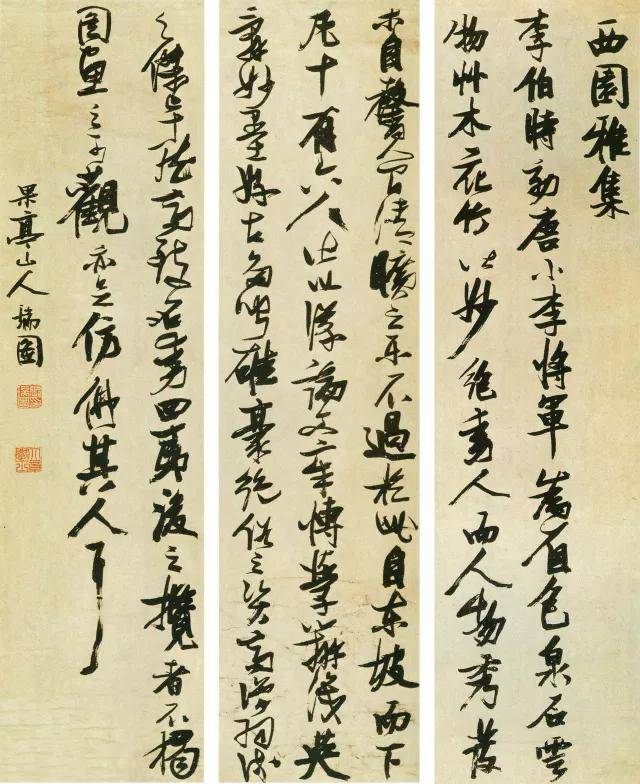 西園雅集
李伯時効唐小李將軍為著色泉石雲
物艸木花竹皆妙絕動人而人物秀發
木自馨人間清曠之樂不過於此自東坡而下
凡十有六人皆以議論文章博學辨識英
辭妙墨好古多聞雄豪絕俗之資高僧羽流
之傑卓然高致名動四夷後之攬者不獨
圖畫之可觀亦足仿佛其人耳
果亭山人瑞圖